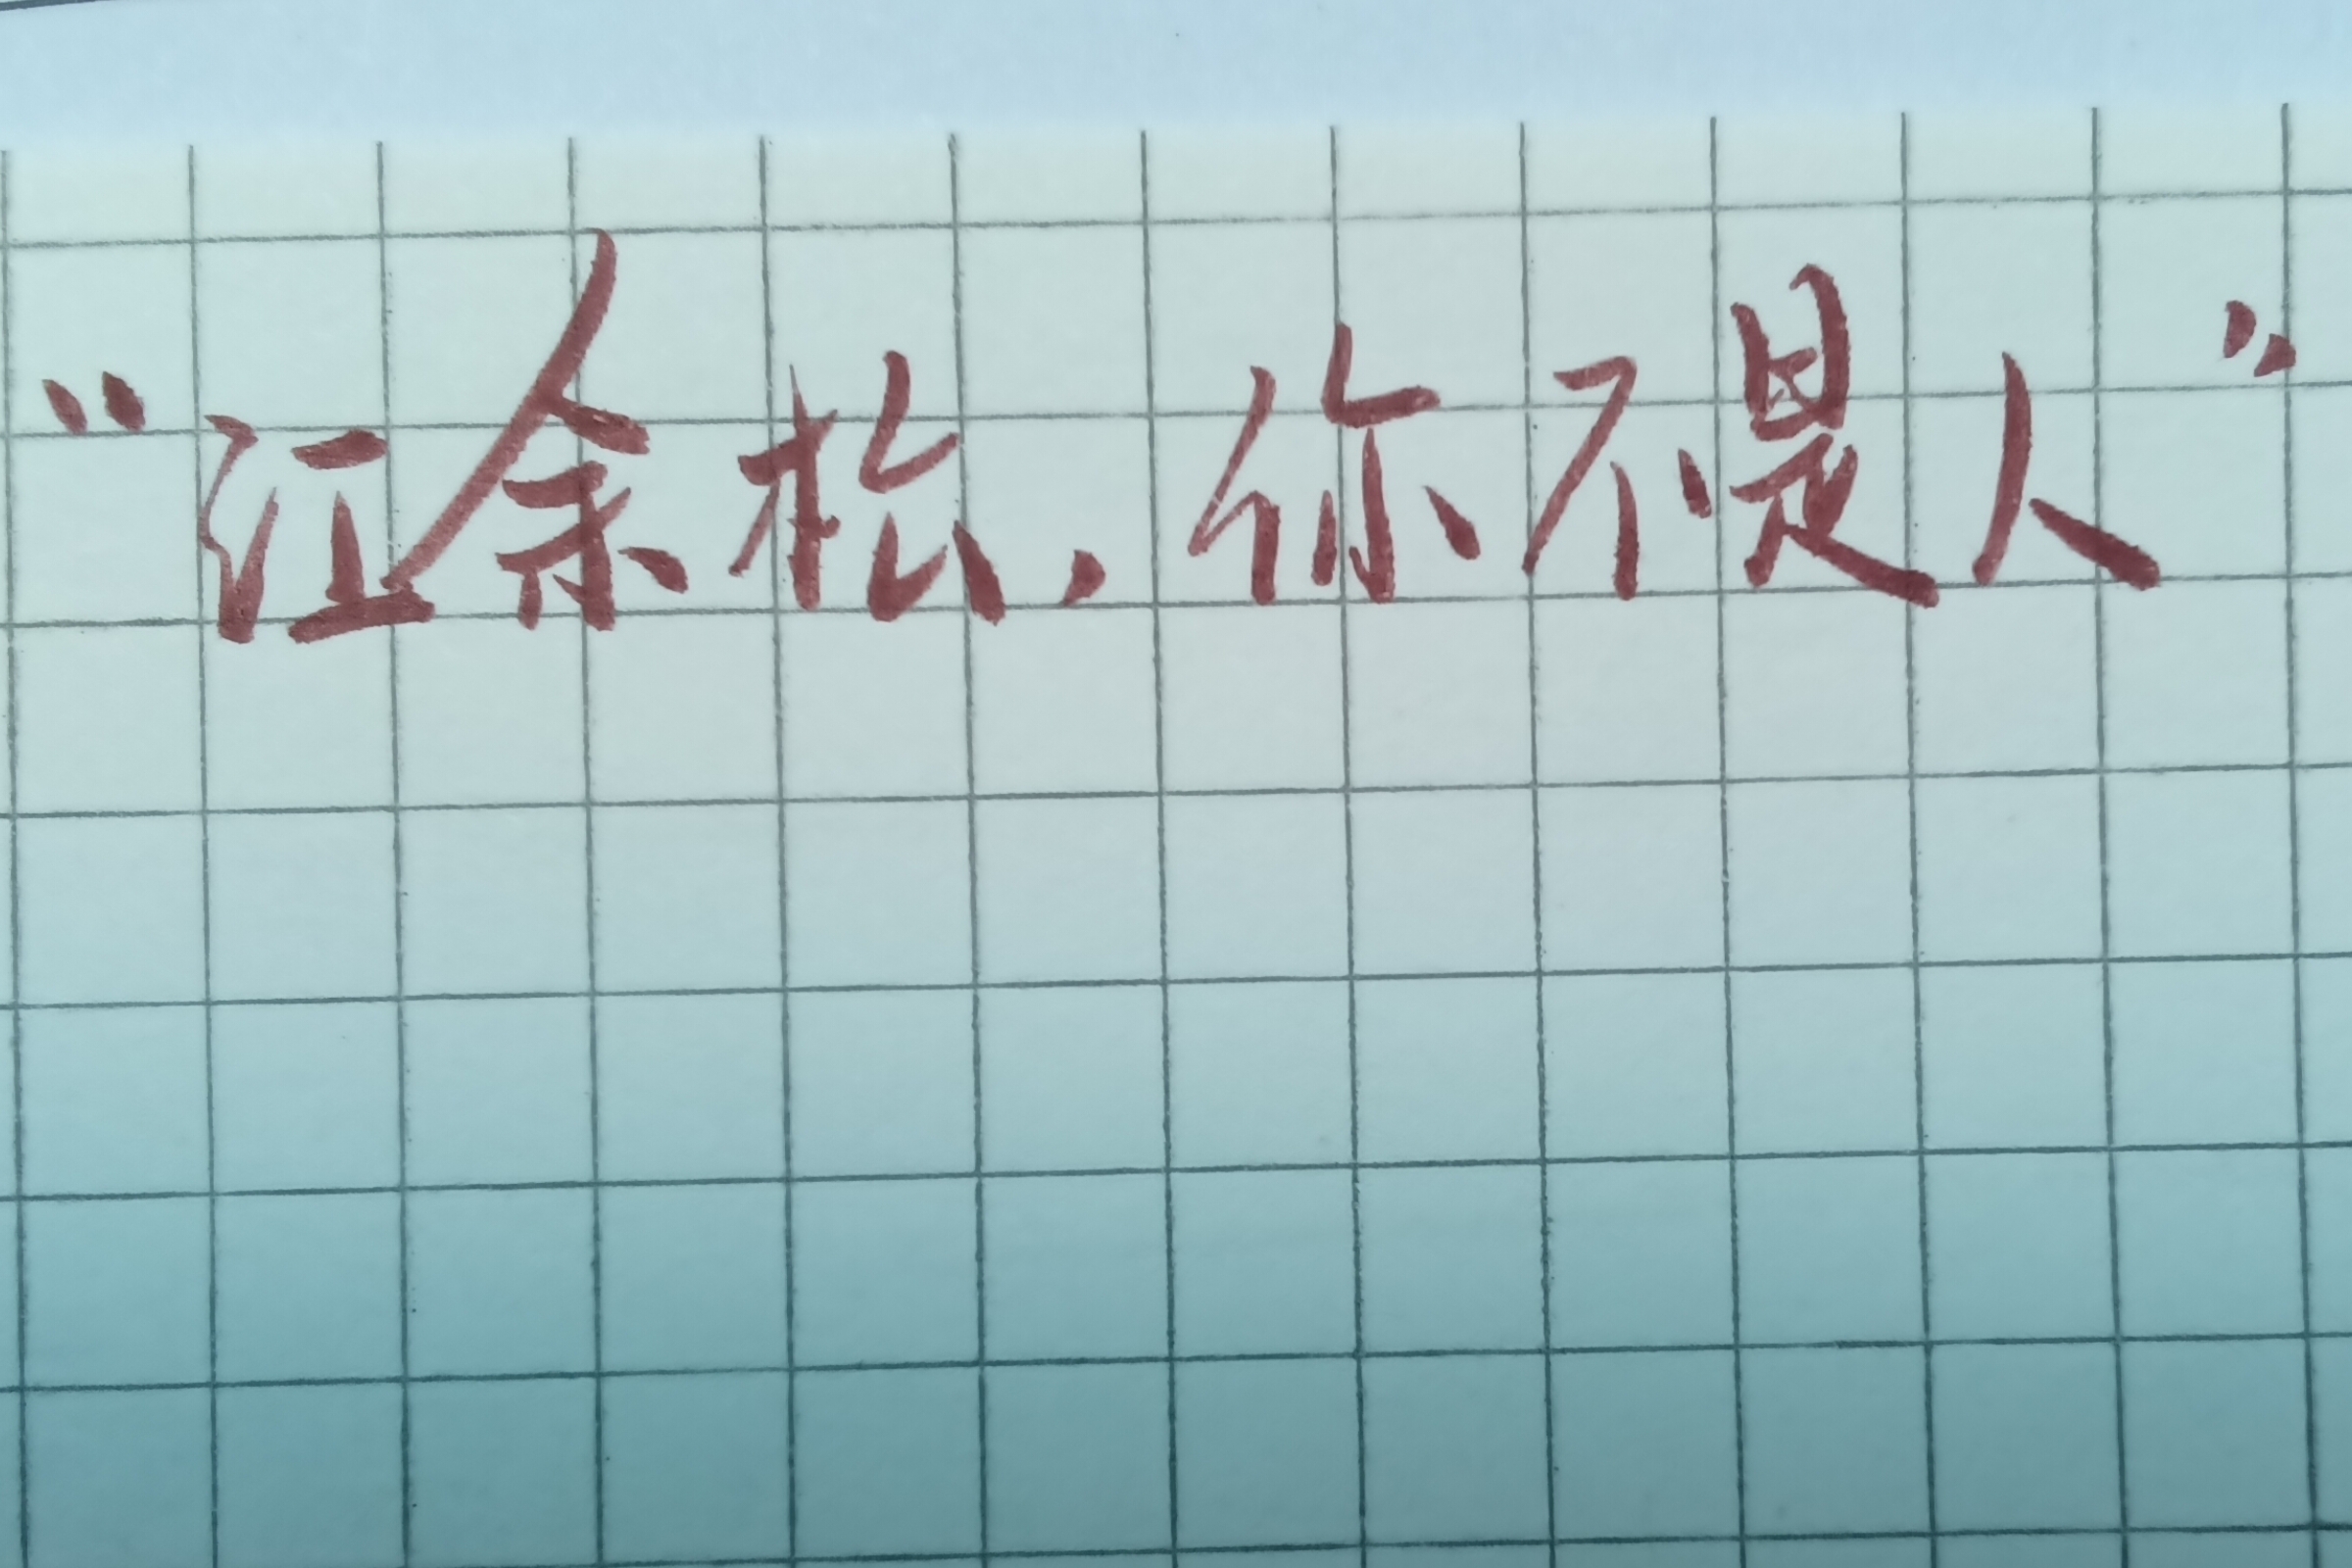 “江余松，你不是人”